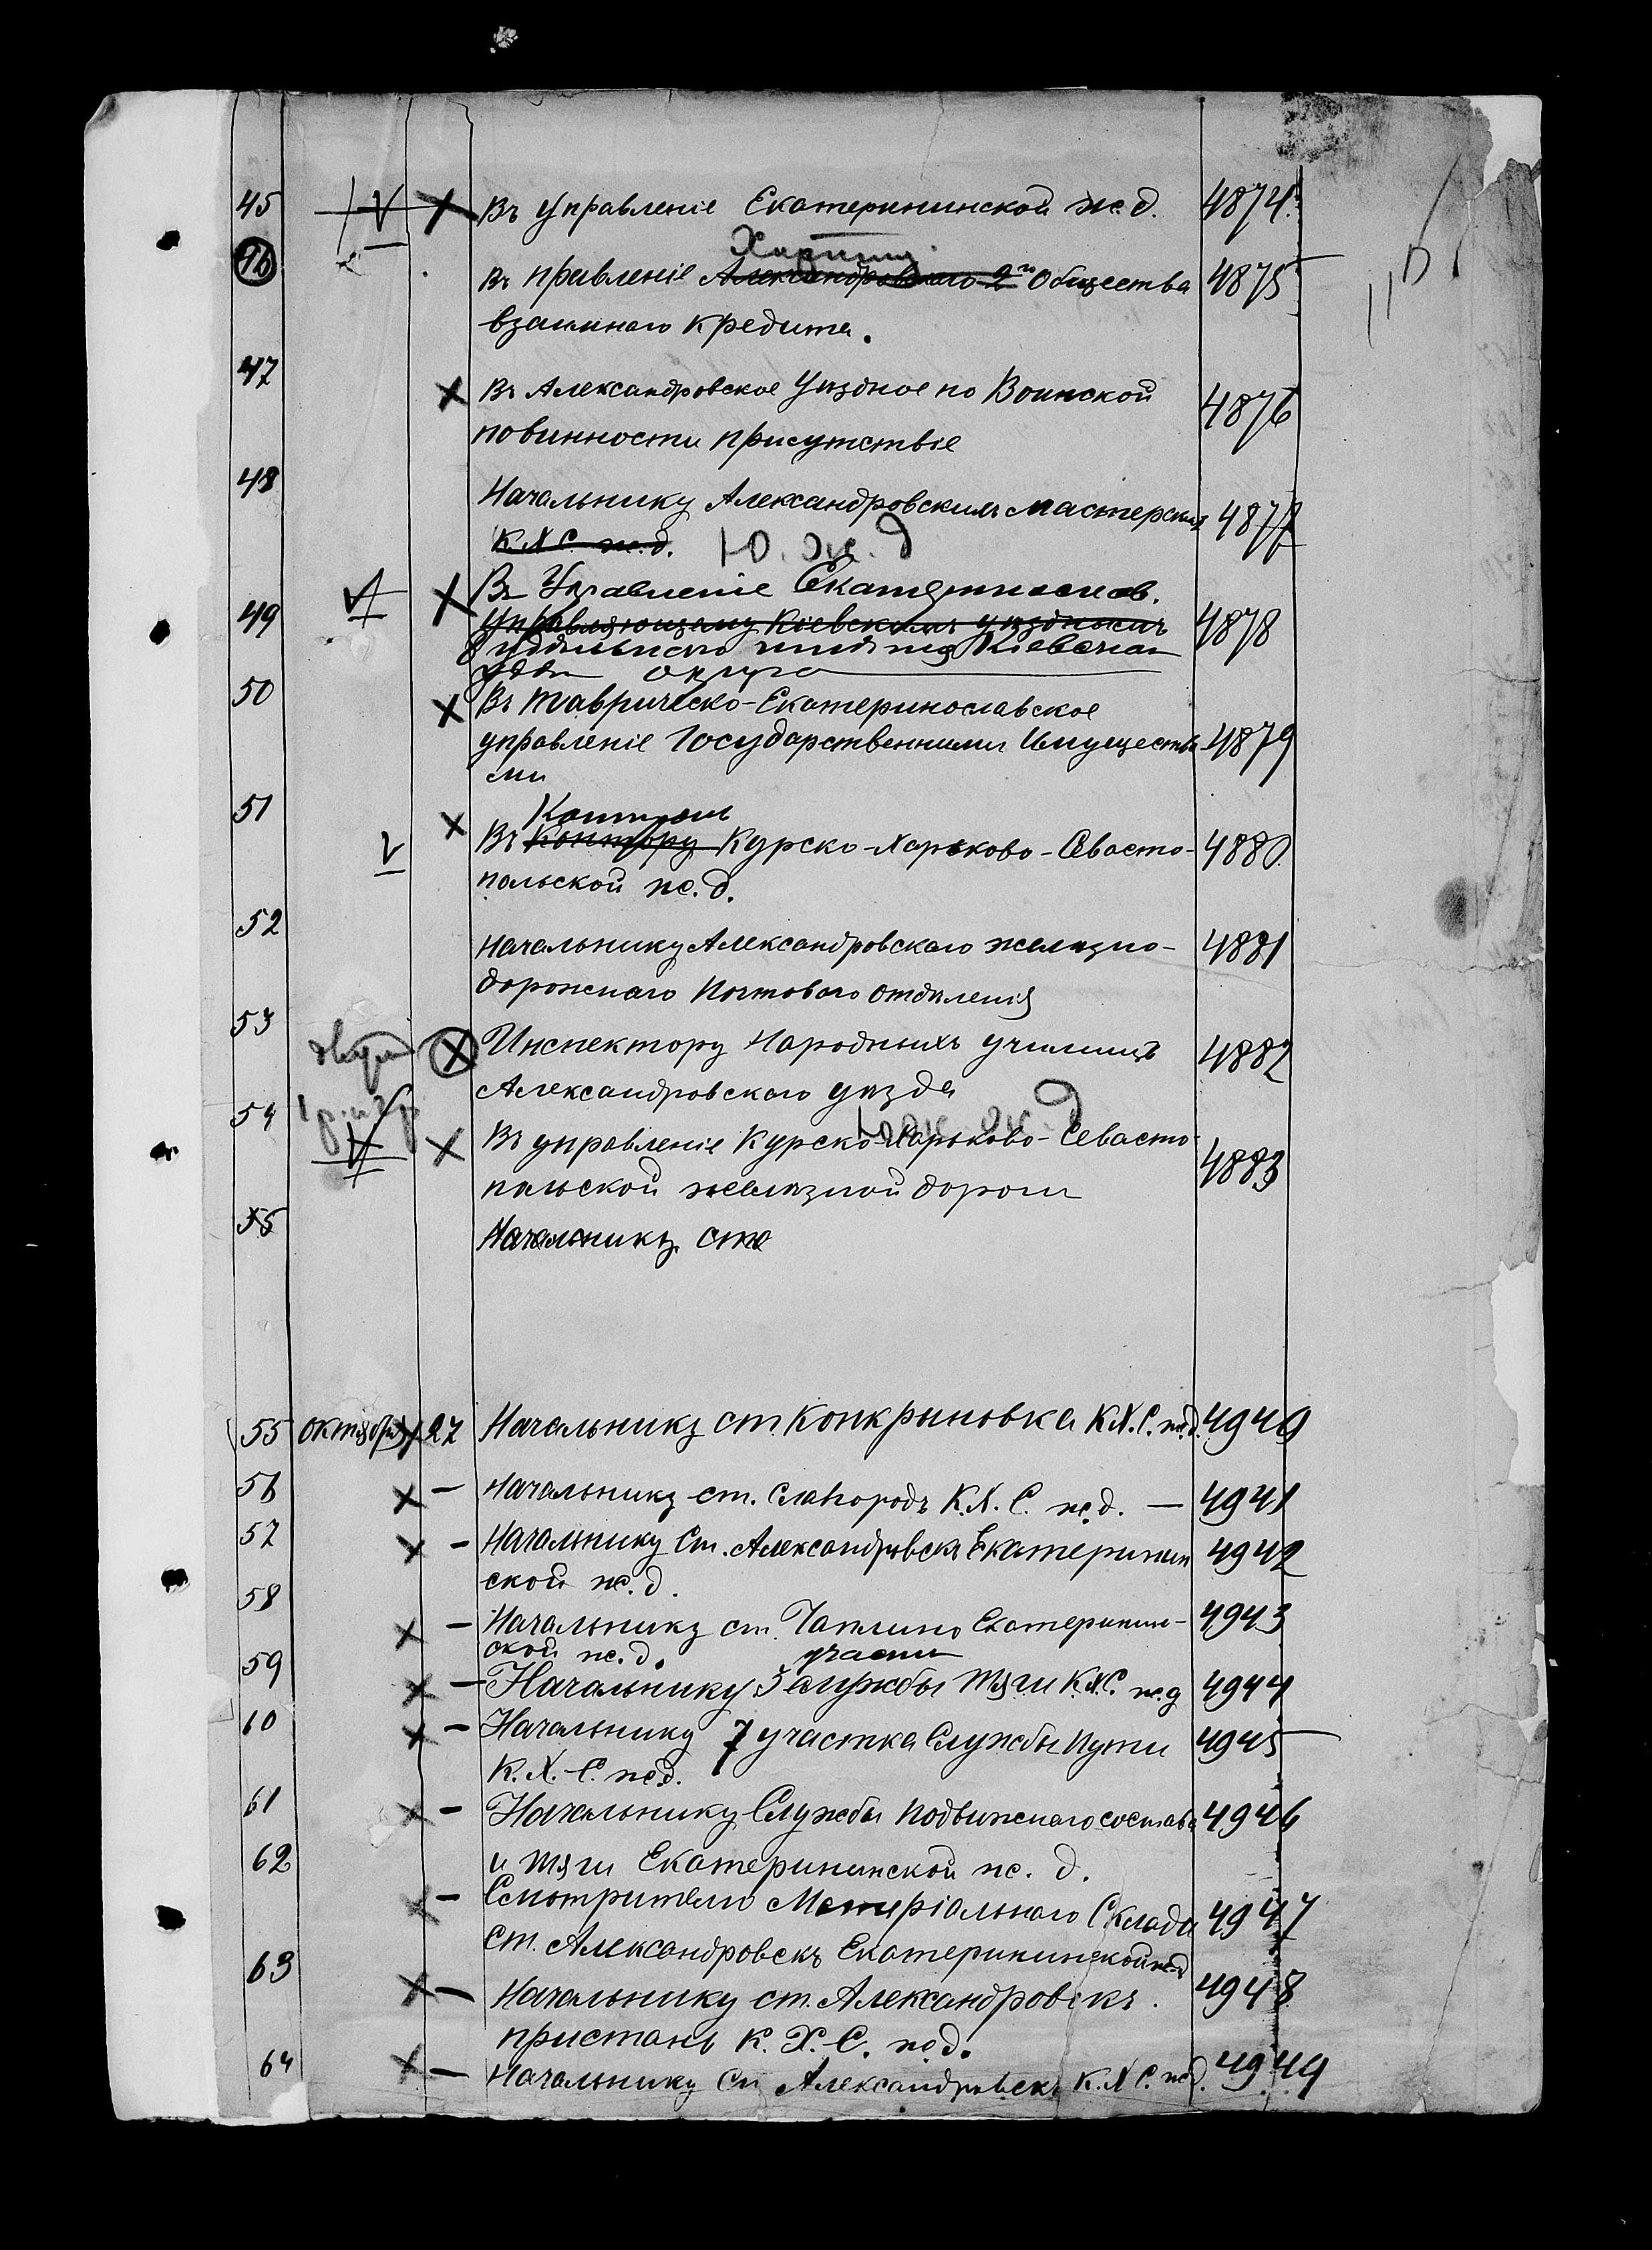 45 Въ управленіе Екатерининской ж.д. 4874
46 Въ правленіе Александровскаго 2го Общества 4875
взаимнаго кредита.
47 Въ Александровское Уѣздное по Воинской 4876
повинности присутствіе
48 Начальнику Александровскихъ мастерскихъ 4877
К.Х.С. ж.д. Ю. ж. д
Въ Управленіе Екатериносла в.
49 Управляющему Кіевскимъ уѣзднымъ 4878
удѣльнаго имѣнія Кіевскаго
удѣл округа
50 Въ Таврическо-Екатеринославское
управленіе Государственными Имущества 4879
ми
Контроль
51 Въ Контору Курско-Харьково-Севасто- 4880
польской ж.д.
52 Начальнику Александровскаго желѣзно- 4881
дорожнаго Почтоваго отдѣленія
53 Инспектору Народныхъ училищъ 4882
Александровскаго уѣзда
Юж. ж. д
54 Въ управленіе Курско-Харьково-Севасто- 4883
польской желѣзной дороги
55 Начальнику ст
55 октября 27 Начальнику ст. Конкриновка К.Х.С. ж.д. 4940
56 — Начальнику ст. Славгородъ К.Х.С. ж.д. — 4941
57 — Начальнику Ст. Александровскъ Екатеринин 4942
ской ж.д.
58 — Начальнику ст. Чаплино Екатеринин- 4943
ской ж.д.
участк
59 — Начальнику 3 службы Тяги К.Х.С. ж.д 4944
60 — Начальнику 7 участка Службы Пути 4945
К.Х.-С. ж.д.
61 — Начальнику Службы подвижнаго состава 4946
и тяги Екатерининской ж. д.
62 — Смотрителю Матеріальнаго Склада 4947
ст. Александровскъ Екатерининской ж.д
63 — Начальнику ст. Александровскъ. 4948
пристань К.Х.-С. ж.д.
64 — Начальнику Ст Александровскъ К.Х.С. ж.д. 4949